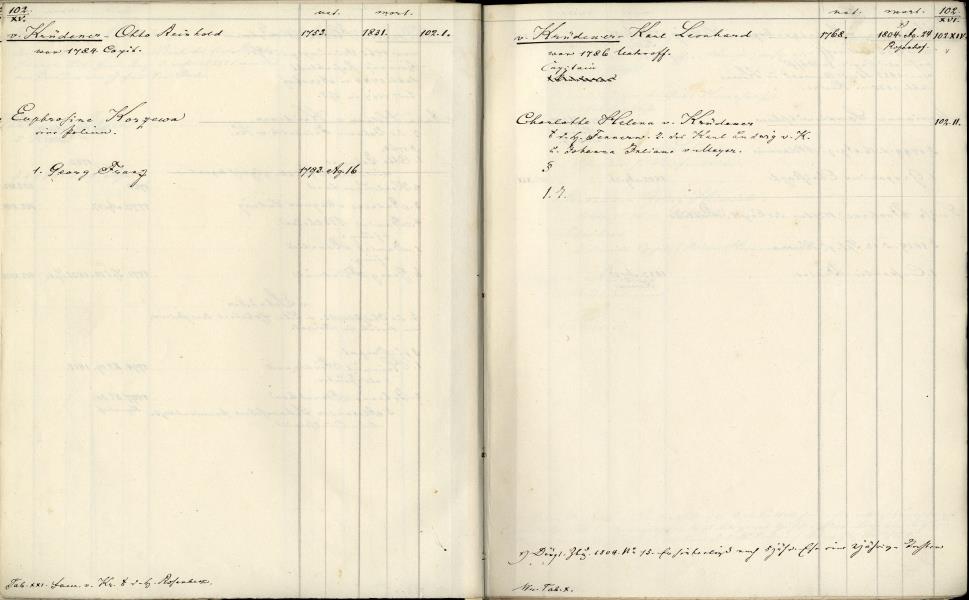 102.
XV.
nat. mort.
v. Krüdener - Otto Reinhold 1753. 1831. 102.I.
war 1784 Capit.
Euphrosine Korzewa
eine Polin.
1. Georg Franz 1793. Ag. 16
Tab. XXI. fam. v. Kr. d. Rosenbeck.
nat. mort. 102.
XVI.
v. Krüdener - Karl Leonhard 1768. 1804. Ag. 24 102 XIV.
war 1786 Untroff.
Capitain
Charlotte Helena v. Krüdener 102.II.
T. des Karl Ludwig v. K.
u. Johanna Juliane v. Meyer.
Ztg. 1804. No 73. nach Ehe eine Tochter
Tab. X.